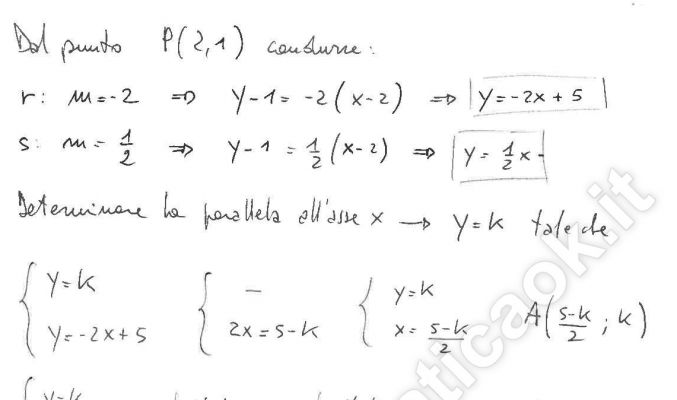 Dal punto P(2,1) condurre:
r: m=-2 ⇒ y-1 = -2(x-2) ⇒ y=-2x+5
s: m=1/2 ⇒ y-1 = 1/2(x-2) ⇒ y=1/2x
Determinare la parallela all'asse x → y=k tale che
{ y=k { — { y=k
{ y=-2x+5 { 2x=5-k { x=(5-k)/2 A((5-k)/2 ; k)
{ y=k
aticaok.it